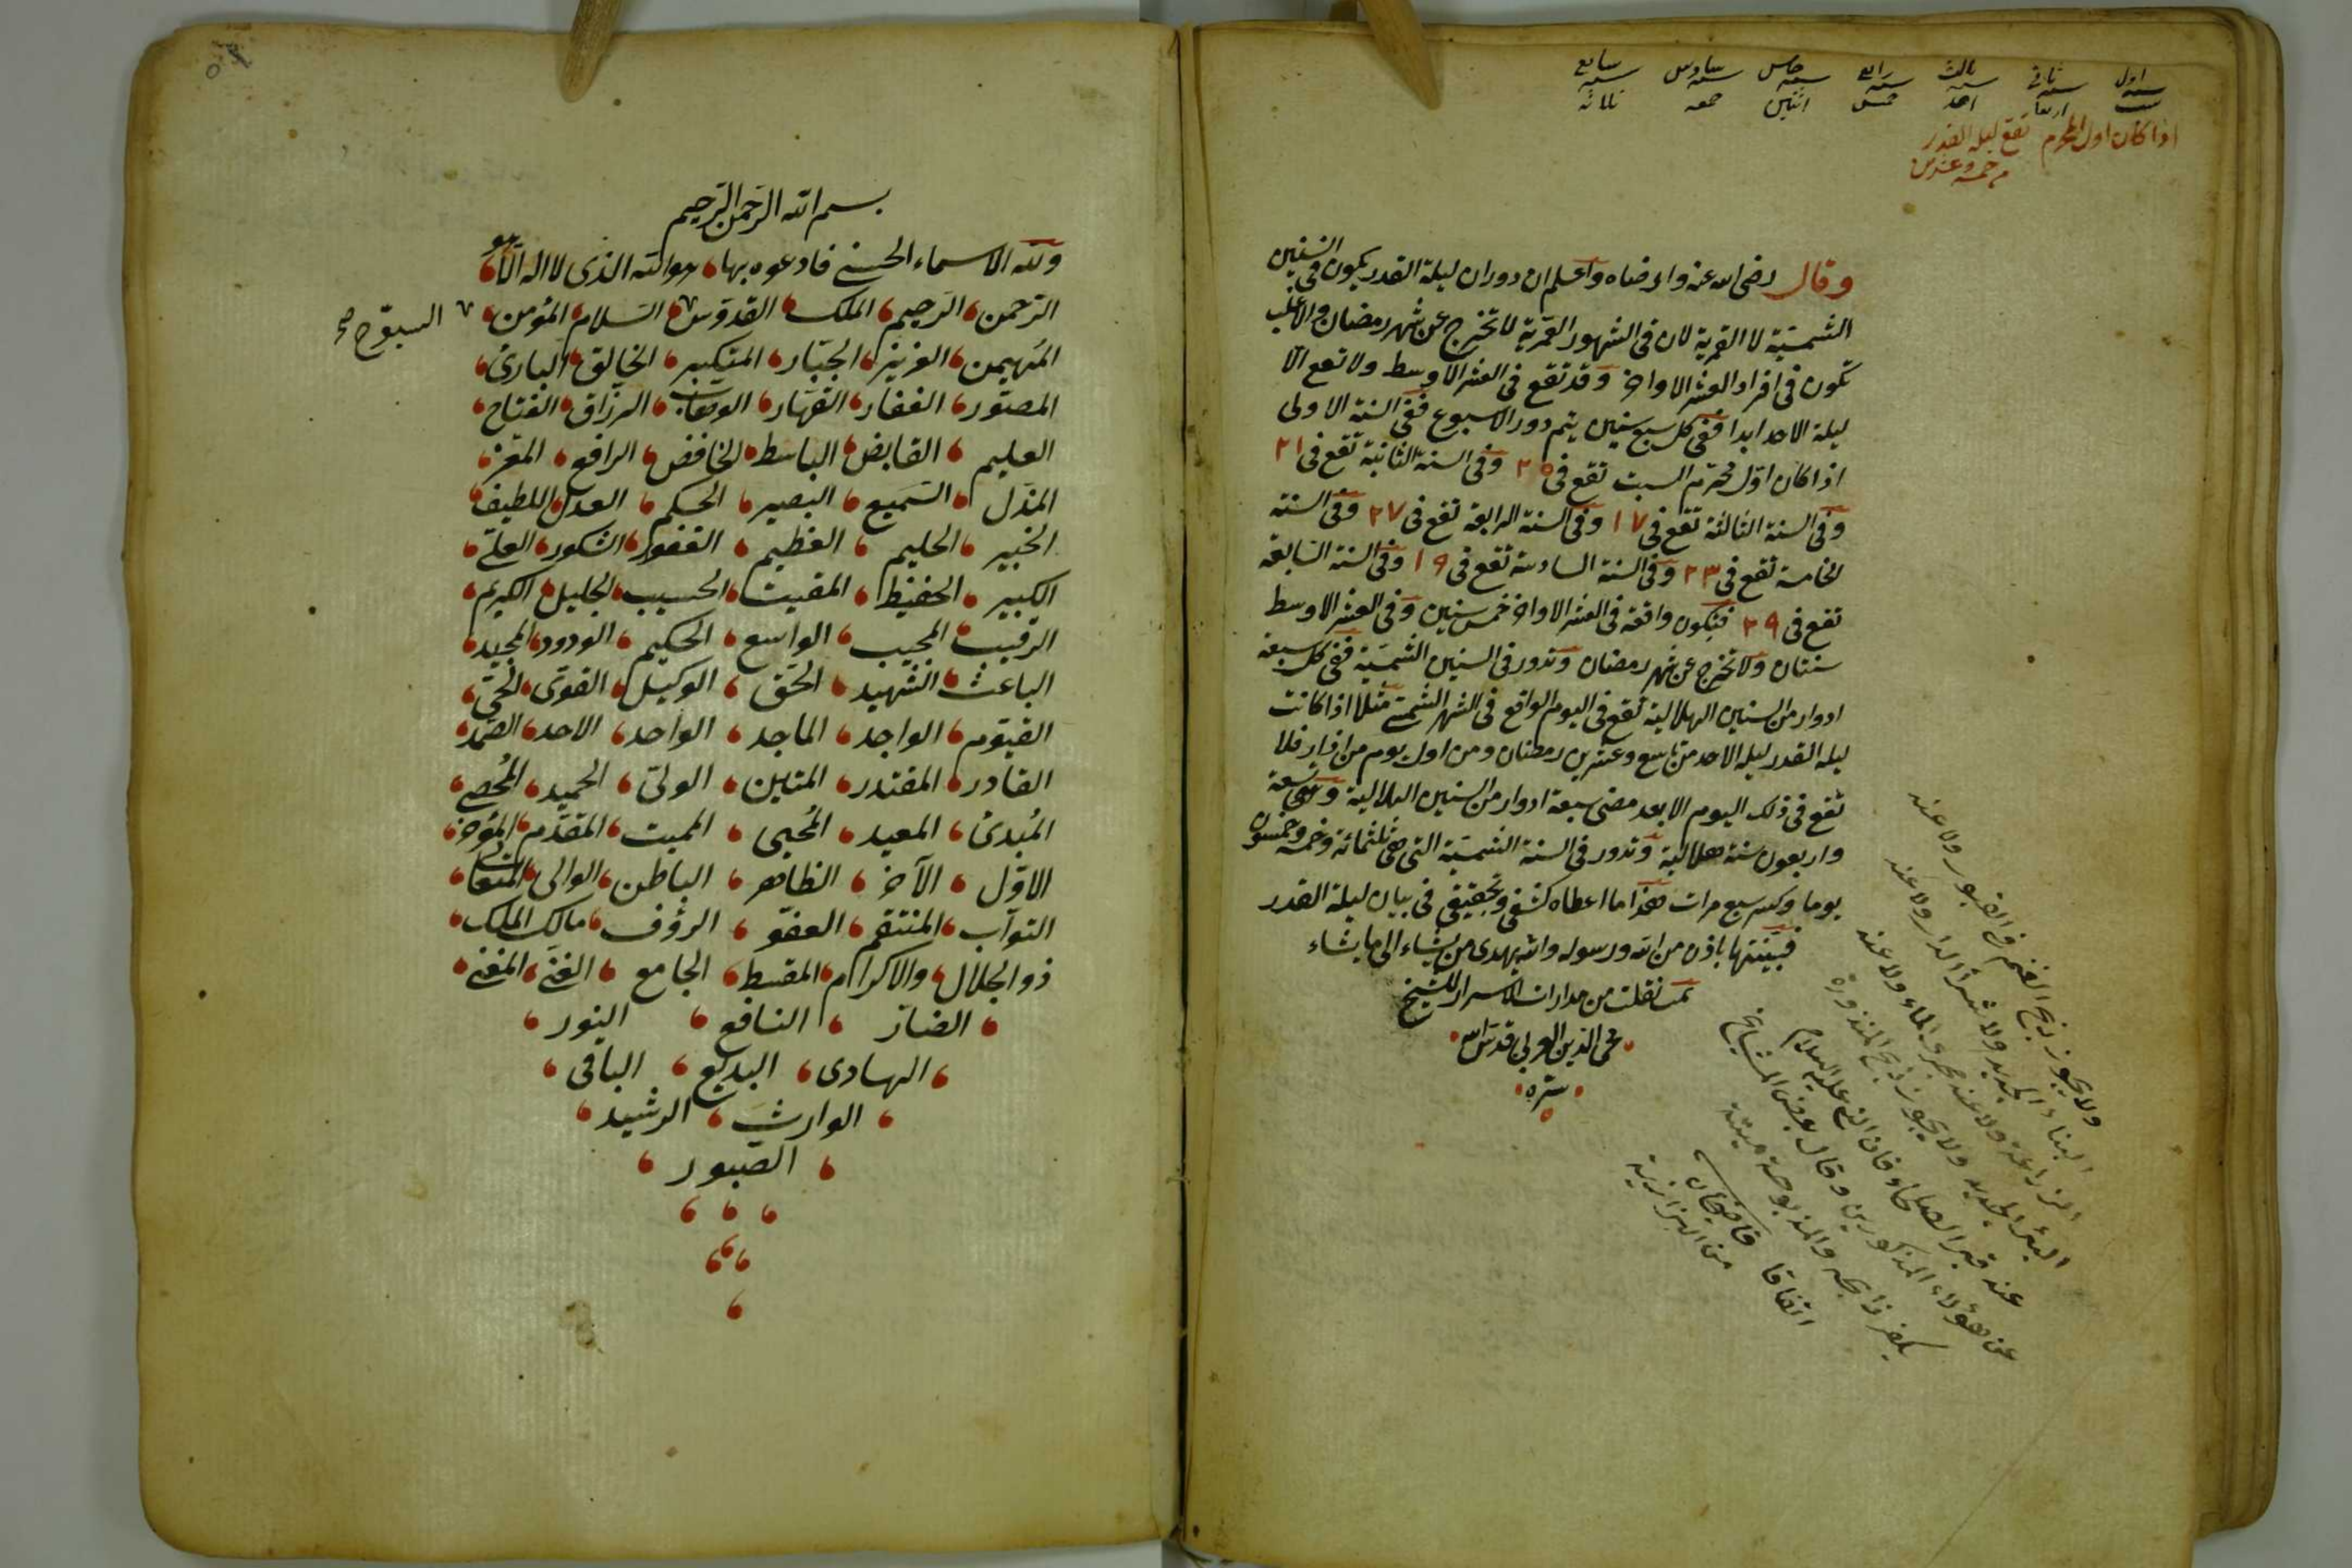 اول ثانى ثالث رابع خامس سادس سابع
سنه سنه سنه سنه سنه سنه سنه
سبت اربعا احد خمس اثنين جمعه ثلاثه
اذا كان اول المحرم تقع ليلة القدر
خمسه وعشرين
وقال رضى الله عنه وارضاه واعلم ان دوران ليلة القدر يكون فى السنين
الشمسية لا القمرية لان فى الشهور القمرية لا تخرج عن شهر رمضان والاغلب
تكون فى افراد العشر الاواخر وقد تقع فى العشر الاوسط ولا تقع الّا
ليلة الاحد ابدا ففى كل سبع سنين يتم دور الاسبوع ففى السنة الاولى
اذا كان اوّل محرّم السبت تقع فى ٢٥ وفى السنة الثانية تقع فى ٢١
وفى السنة الثالثة تقع فى ١٧ وفى السنة الرابعة تقع فى ٢٧ وفى السنة
الخامسة تقع فى ٢٣ وفى السنة السادسة تقع فى ١٩ وفى السنة السّابعة
تقع فى ٢٩ فتكون واقعة فى العشر الاواخر خمس سنين وفى العشر الاوسط
سنتان ولا تخرج عن شهر رمضان وتدور فى السنين الشمسيّة ففى كل سبعة
ادوار من السنين الهلالية تقع فى اليوم الواقع فى الشهر الشمسى مثلا اذا كانت
ليلة القدر ليلة الاحد من تاسع وعشرين رمضان ومن اول يوم من اذار فلا
تقع فى ذلك اليوم الا بعد مضى سبعة ادوار من السنين الهلالية وهى تسعة
واربعون سنة هلالية وتدور فى السنة الشمسيّة التى هى ثلثمائة وخمسة وخمسون
يوما وكسر سبع مرات هذا ما اعطاه كشفى وتحقيقى فى بيان ليلة القدر
فبيّنتها باذن من الله ورسوله والله يهدى من يشاء الى ما يشاء
تمت نقلت من مدارات الاسرار للشيخ
محى الدين العربى قدس الله
سرّه
ولا يجوز ذبح الغنم فى القبور ولا عند
البناء الجديد ولا شراء الدار ولا عند
الزراعة ولا عند مجرى الماء ولا عند
البئر الجديد ولا يجوز ذبح المنذورة
عند قبر الصلحاء عليه السلام
عن هؤلاء المذكورين وقال بعض المشايخ
يكفر ذابحه والمذبوحة ميتة
اتفاقا قاضيخان
من البزازية
بسم الله الرّحمن الرّحيم
ولله الاسماء الحسنى فادعوه بها هو الله الذى لا اله الّا هو
الرّحمن الرّحيم الملك القدّوس السّلام المؤمن
السبّوح صح
المهيمن العزيز الجبّار المتكبر الخالق البارئ
المصوّر الغفّار القهّار الوهاب الرزّاق الفتاح
العليم القابض الباسط الخافض الرافع المعزّ
المذلّ السّميع البصير الحكم العدل اللطيف
الخبير الحليم العظيم الغفور الشكور العلىّ
الكبير الحفيظ المقيت الحسيب الجليل الكريم
الرّقيب المجيب الواسع الحكيم الودود المجيد
الباعث الشهيد الحقّ الوكيل القوىّ الحىّ
القيّوم الواجد الماجد الواحد الاحد الصّمد
القادر المقتدر المتين الولىّ الحميد المحصى
المبدئ المعيد المحيى المميت المقدّم المؤخر
الاوّل الآخر الظاهر الباطن الوالى المتعالى
التوّاب المنتقم العفوّ الرؤف مالك الملك
ذو الجلال والاكرام المقسط الجامع الغنى المغنى
الضارّ النافع النور
الهادى البديع الباقى
الوارث الرشيد
الصّبور